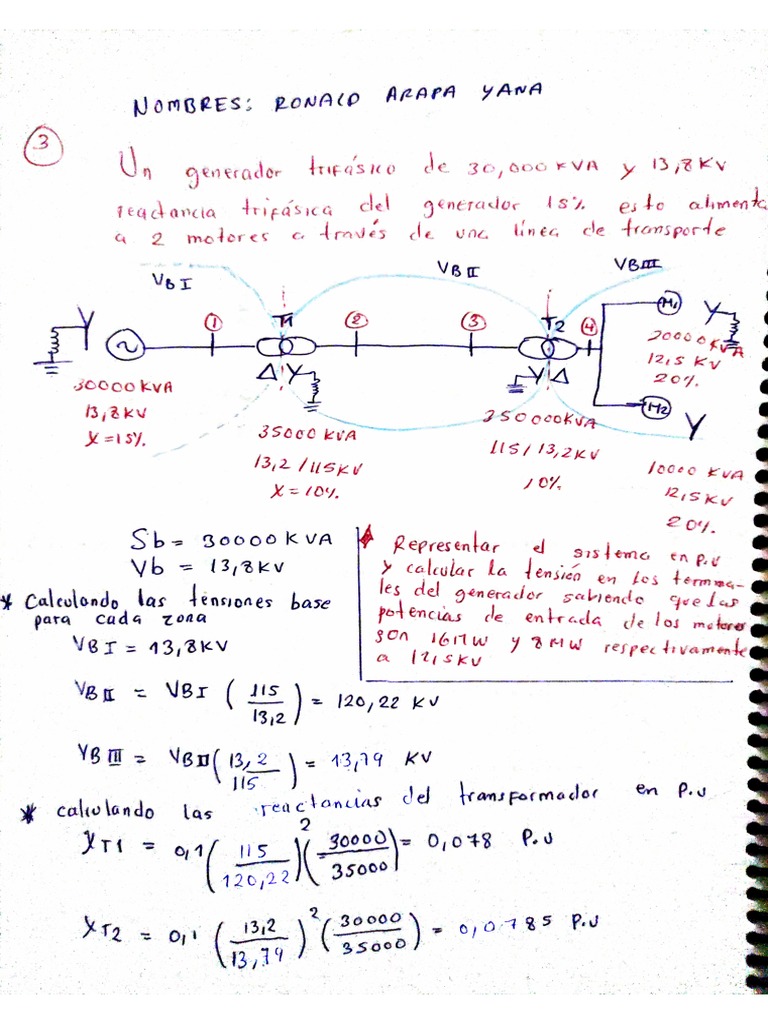 NOMBRES: RONALD ARAPA YANA
3
Un generador trifásico de 30,000 KVA y 13,8KV
reactancia trifásica del generador 15% esto alimenta
a 2 motores a través de una línea de transporte
VBI
VBII
VBIII
1
T1
2
3
T2
4
M1
Y
Y
~
Δ Y
Y Δ
M2
Y
30000KVA
13,8KV
X=15%
35000 KVA
13,2/115KV
X=10%
350000KVA
115/13,2KV
10%
20000KVA
12,5 KV
20%
10000 KVA
12,5KV
20%
Sb = 30000KVA
Vb = 13,8KV
* Calculando las tensiones base
para cada zona
Representar el sistema en p.u
y calcular la tensión en los termina-
les del generador sabiendo que las
potencias de entrada de los motores
son 16MW y 8MW respectivamente
a 12,5KV
VBI = 13,8KV
VBII = VBI (115/13,2) = 120,22 KV
VBIII = VBII (13,2/115) = 13,79 KV
* calculando las reactancias del transformador en p.u
XT1 = 0,1 (115/120,22)² (30000/35000) = 0,078 P.U
XT2 = 0,1 (13,2/13,79)² (30000/35000) = 0,0785 P.U